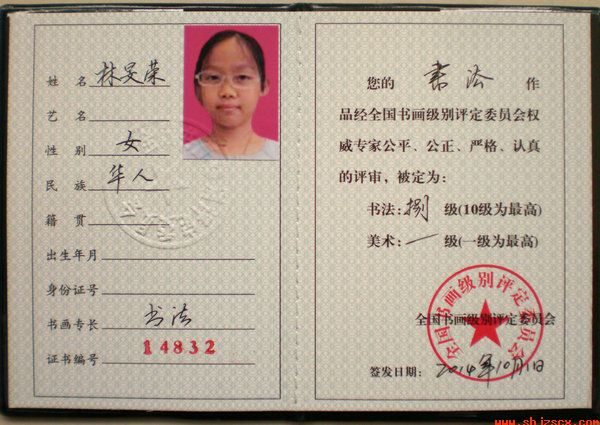 姓 名 林旻荣
艺 名
性 别 女
民 族 华人
籍 贯
出生年月
身份证号
书画专长 书法
证书编号 14832
您的 书法 作
品经全国书画级别评定委员会权
威专家公平、公正、严格、认真
的评审，被定为：
书法：捌 级(10级为最高)
美术：一 级(一级为最高)
全国书画级别评定委员会
全国书画级别评定委员会
签发日期： 2014年10月1日
www.shjzscx.com